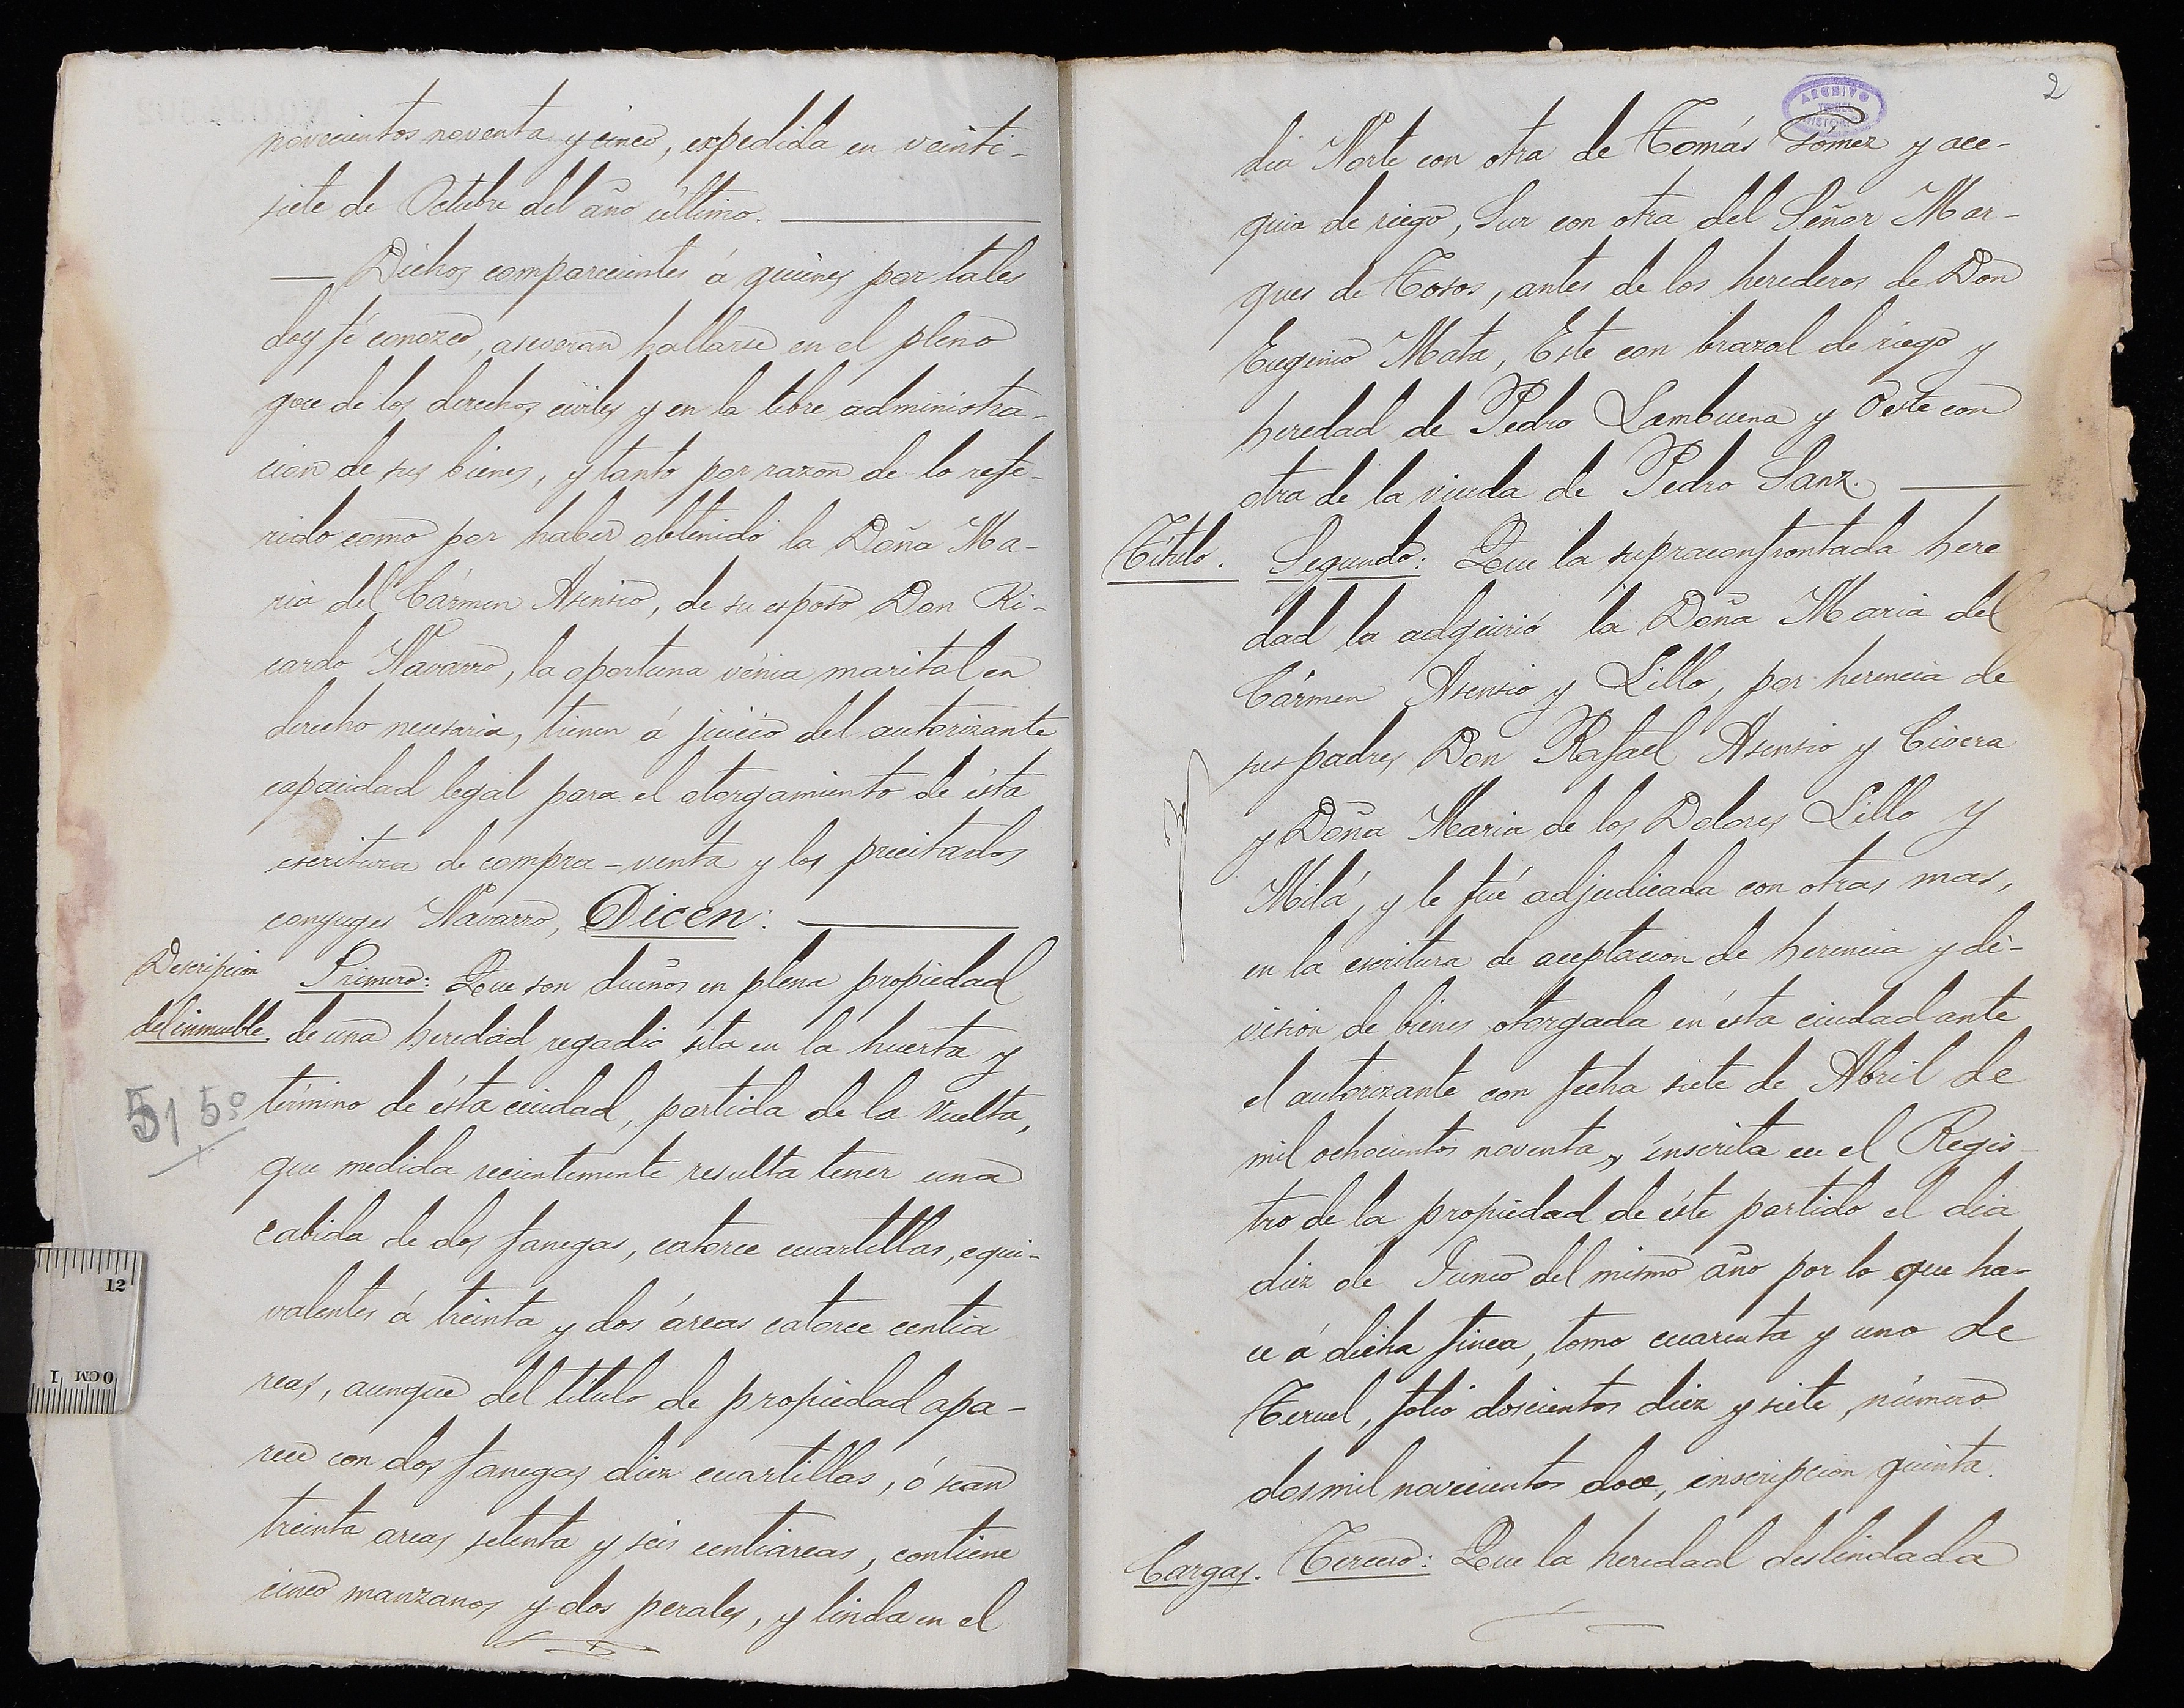 novecientos noventa y cinco, expedida en veinti-
siete de Octubre del año último.
— Dichos comparecientes á quienes por tales
doy fé conozco, aseveran hallarse en el pleno
goce de los derechos civiles y en la libre administra-
cion de sus bienes, y tanto por razon de lo refe-
rido como por haber obtenido la Doña Ma-
ria del Cármen Asensio, de su esposo Don Ri-
cardo Navarro, la oportuna vénia marital en
derecho necesaria, tienen á juicio del autorizante
capacidad legal para el otorgamiento de ésta
escritura de compra-venta y los precitados
conyuges Navarro, Dicen:
Descripcion Primero: Que son dueños en plena propiedad
del inmueble. de una heredad regadio sita en la huerta y
51 5º término de ésta ciudad, partida de la Vuelta,
que medida recientemente resulta tener una
cabida de dos fanegas, catorce cuartillas, equi-
valentes á treinta y dos áreas catorce centia
reas, aunque del título de propiedad apa-
rece con dos fanegas diez cuartillas, ó sean
treinta areas setenta y seis centiareas, contiene
cinco manzanos y dos perales, y linda en el
2
ARCHIVO
TERUEL
HISTORICO
dia Norte con otra de Tomás Gómez y ace-
quia de riego, Sur con otra del Señor Mar-
ques de Tosos, antes de los herederos de Don
Eugenio Mata, Este con brazal de riego y
heredad de Pedro Lambuena y Oeste con
otra de la viuda de Pedro Sanz.
Título. Segundo: Que la supraconfrontada here
dad la adquirió la Doña Maria del
Cármen Asensio y Lillo, por herencia de
sus padres Don Rafael Asensio y Civera
y Doña Maria de los Dolores Lillo y
Milá, y le fué adjudicada con otras mas,
en la escritura de aceptacion de herencia y di-
vision de bienes otorgada en ésta ciudad ante
el autorizante con fecha siete de Abril de
mil ochocientos noventa, é inscrita en el Regis-
tro de la propiedad de éste partido el dia
diez de Junio del mismo año por lo que ha-
ce á dicha finca, tomo cuarenta y uno de
Teruel, fólio doscientos diez y siete, número
dos mil novecientos doce, inscripcion quinta.
Cargas. Tercero: Que la heredad deslindada